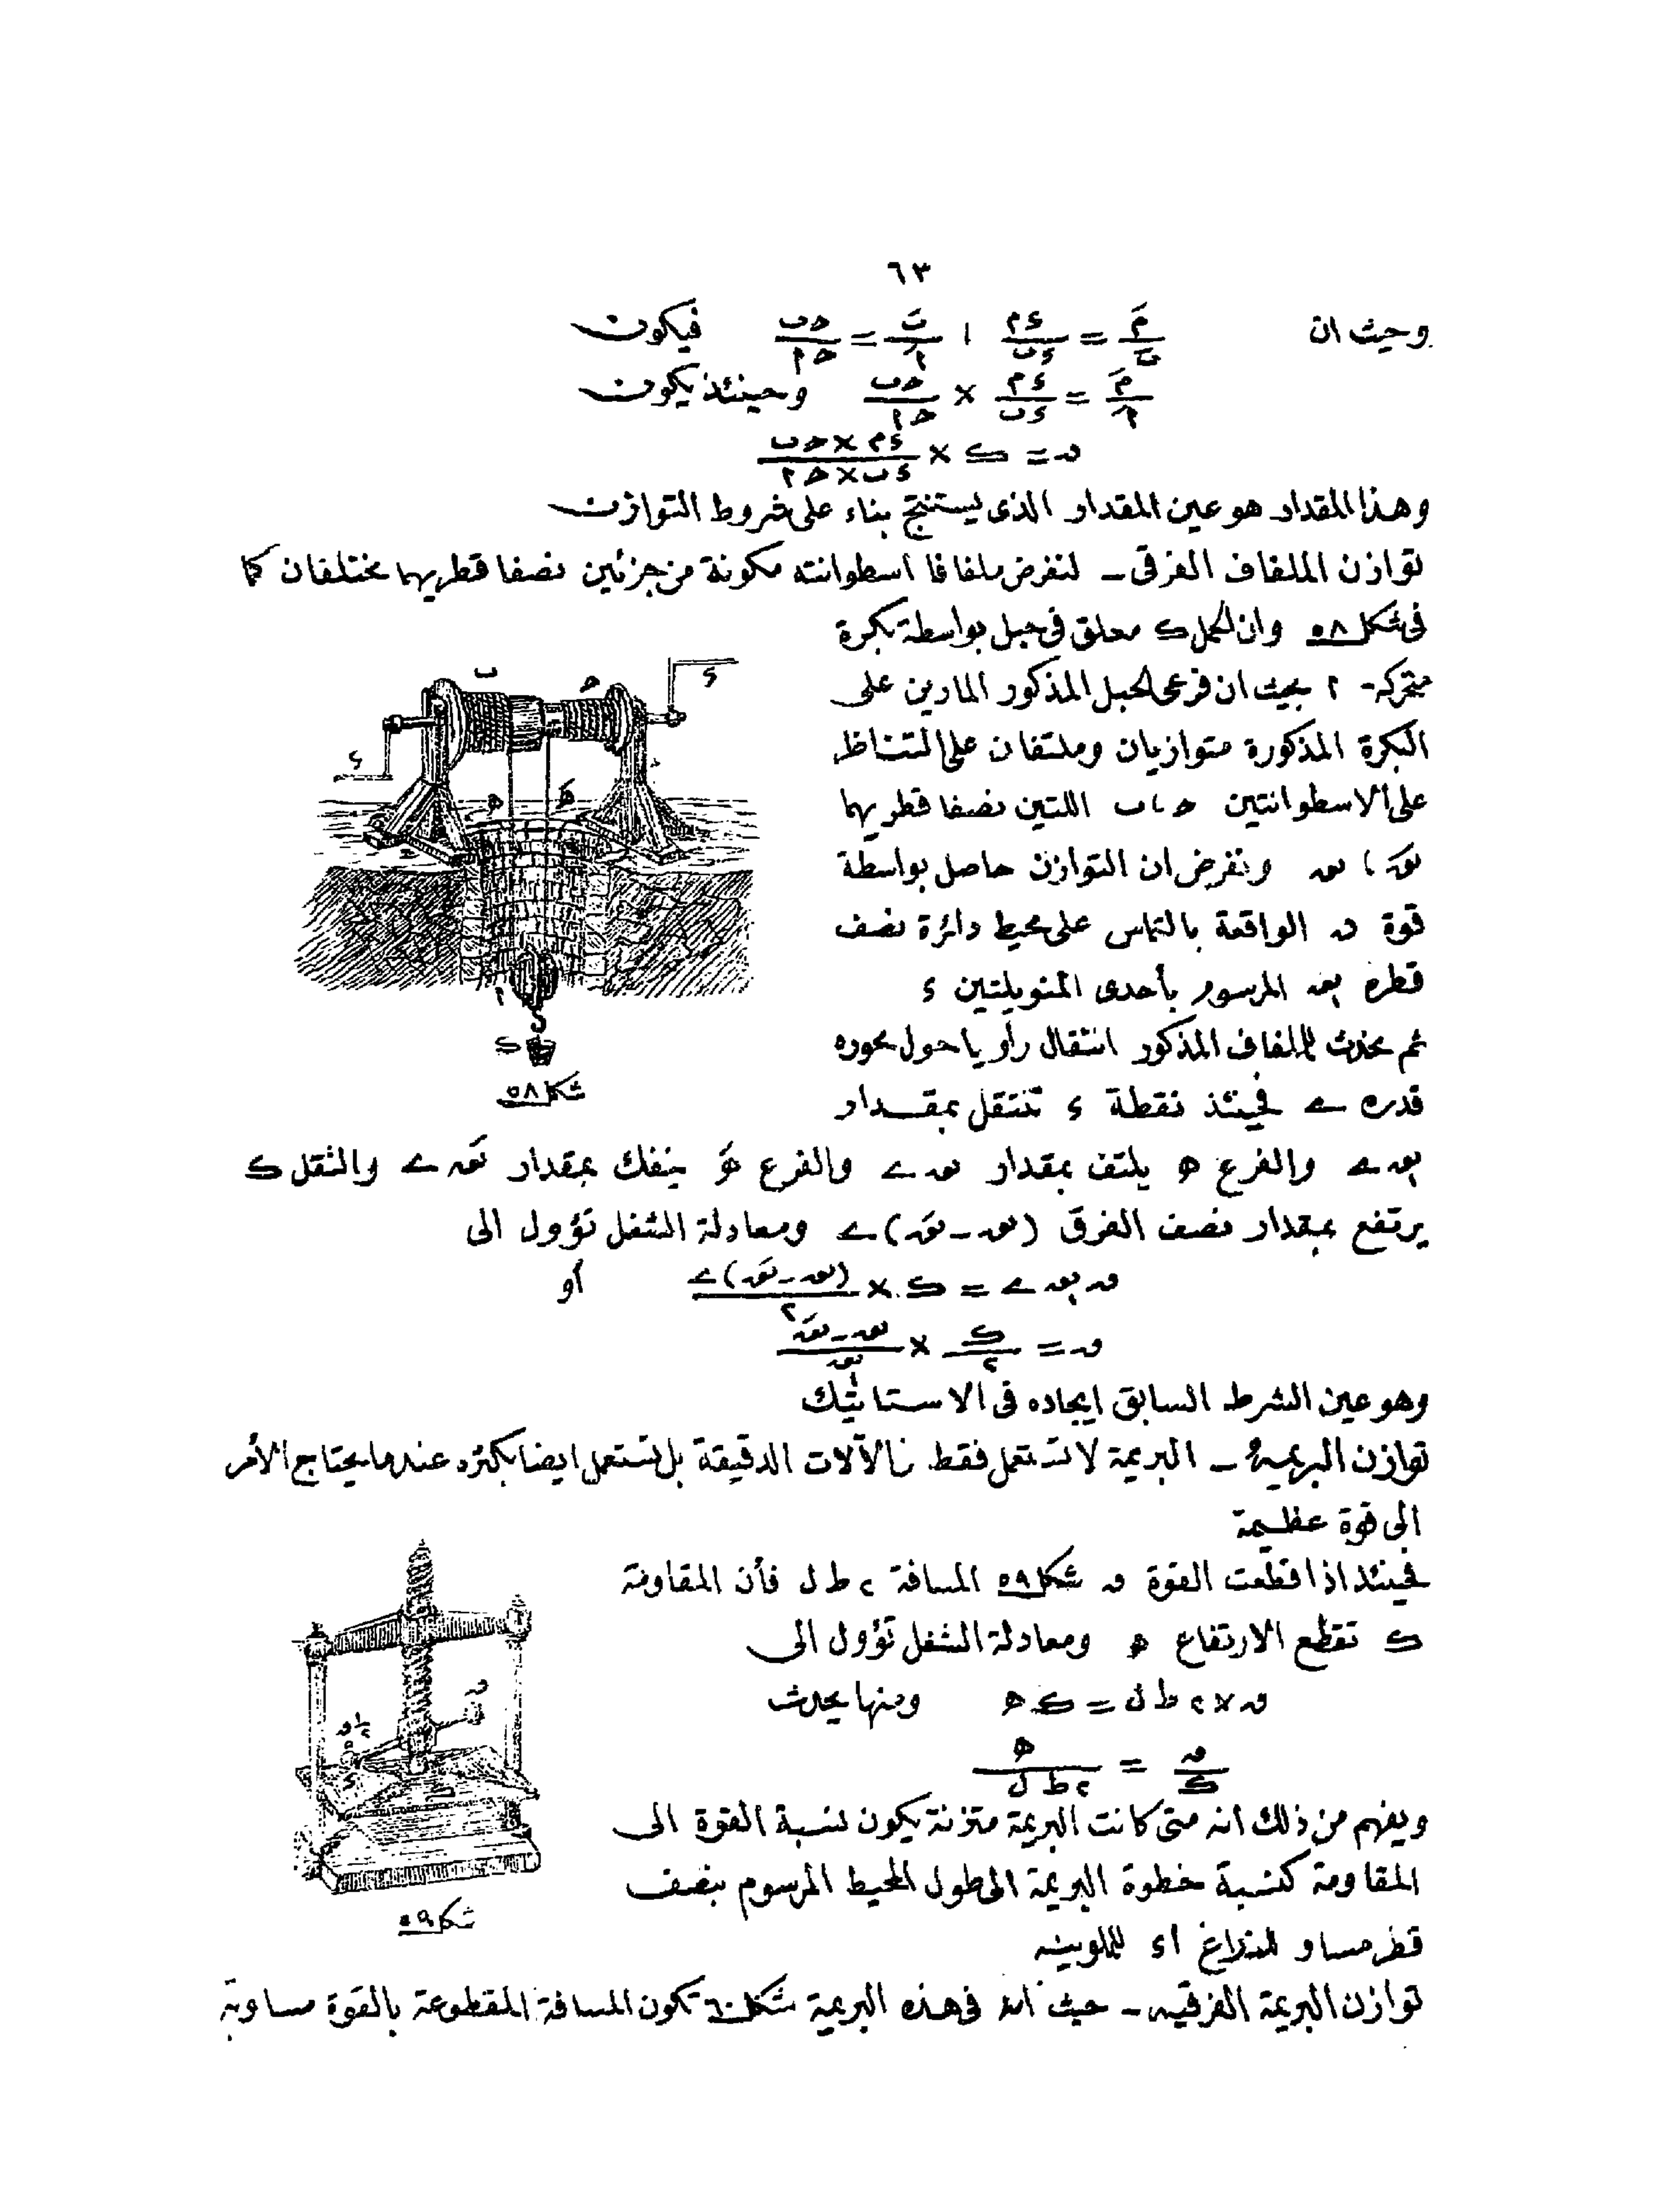 ٦٣
وحيث ان مَ/بَ = ءم/ءب ، بَ/اَ = حب/حا فيكون
مَ/اَ = ءم/ءب × حب/حا وحينئذ يكون
ن = ك × ءم×حب/ءب×حا
وهذا المقدار هو عين المقدار الذى يستنتج بناء على شروط التوازن
توازن الملفاف الفرقى ـ لنفرض ملفافا اسطوانته مكونة من جزئين نصفا قطريهما مختلفان كما
فى شكل ٥٨ وان الحمل ك معلق فى حبل بواسطة بكرة
متحركة ا بحيث ان فرعى الحبل المذكور المارين على
البكرة المذكورة متوازيان وملتفان على التناظر
على الاسطوانتين ح ، ب اللتين نصفا قطريهما
نقَ ، نق ونفرض ان التوازن حاصل بواسطة
قوة ن الواقعة بالتماس على محيط دائرة نصف
قطره المرسوم بأحدى المنويلتين ء
ثم يحدث للملفاف المذكور انتقال راويا حول محوره
قدره ے فحينئذ نقطة ء تنتقل بمقدار
ے والفرع ه يلتف بمقدار نق ے والفرع هَ ينفك بمقدار نقَ ے والثقل ك
يرتفع بمقدار نصف الفرق (نق ـ نقَ) ے ومعادلة الشغل تؤول الى
ے = ك × (نق ـ نقَ) ے/٢ أو
ن = ك/٢ × نق ـ نقَ/نق
وهو عين الشرط السابق ايجاده فى الاستاتيك
توازن البريمة ـ البريمة لا تستعمل فقط فى الآلات الدقيقة بل تستعمل ايضا بكثره عندما يحتاج الأمر
الى قوة عظيمة
فحينئذ اذا قطعت القوة ن شكل ٥٩ المسافة ٢ ط ل فأن المقاومة
ك تقطع الارتفاع ه ومعادلة الشغل تؤول الى
ن × ٢ ط ل = ك ه ومنها يحدث
ن/ك = ه/٢ ط ل
ويفهم من ذلك انه متى كانت البريمة متزنة يكون نسبة القوة الى
المقاومة كنسبة خطوة البريمة الى طول المحيط المرسوم بنصف
قطر مساو للذراع اء
توازن البريمة الفرقيه ـ حيث انه فى هذه البريمة شكل ٦٠ تكون المسافة المقطوعة بالقوة مساوية
ب
ح
ء
ء
ه
هَ
ا
ك
شكل ٥٨
ن
ء
شكل ٥٩